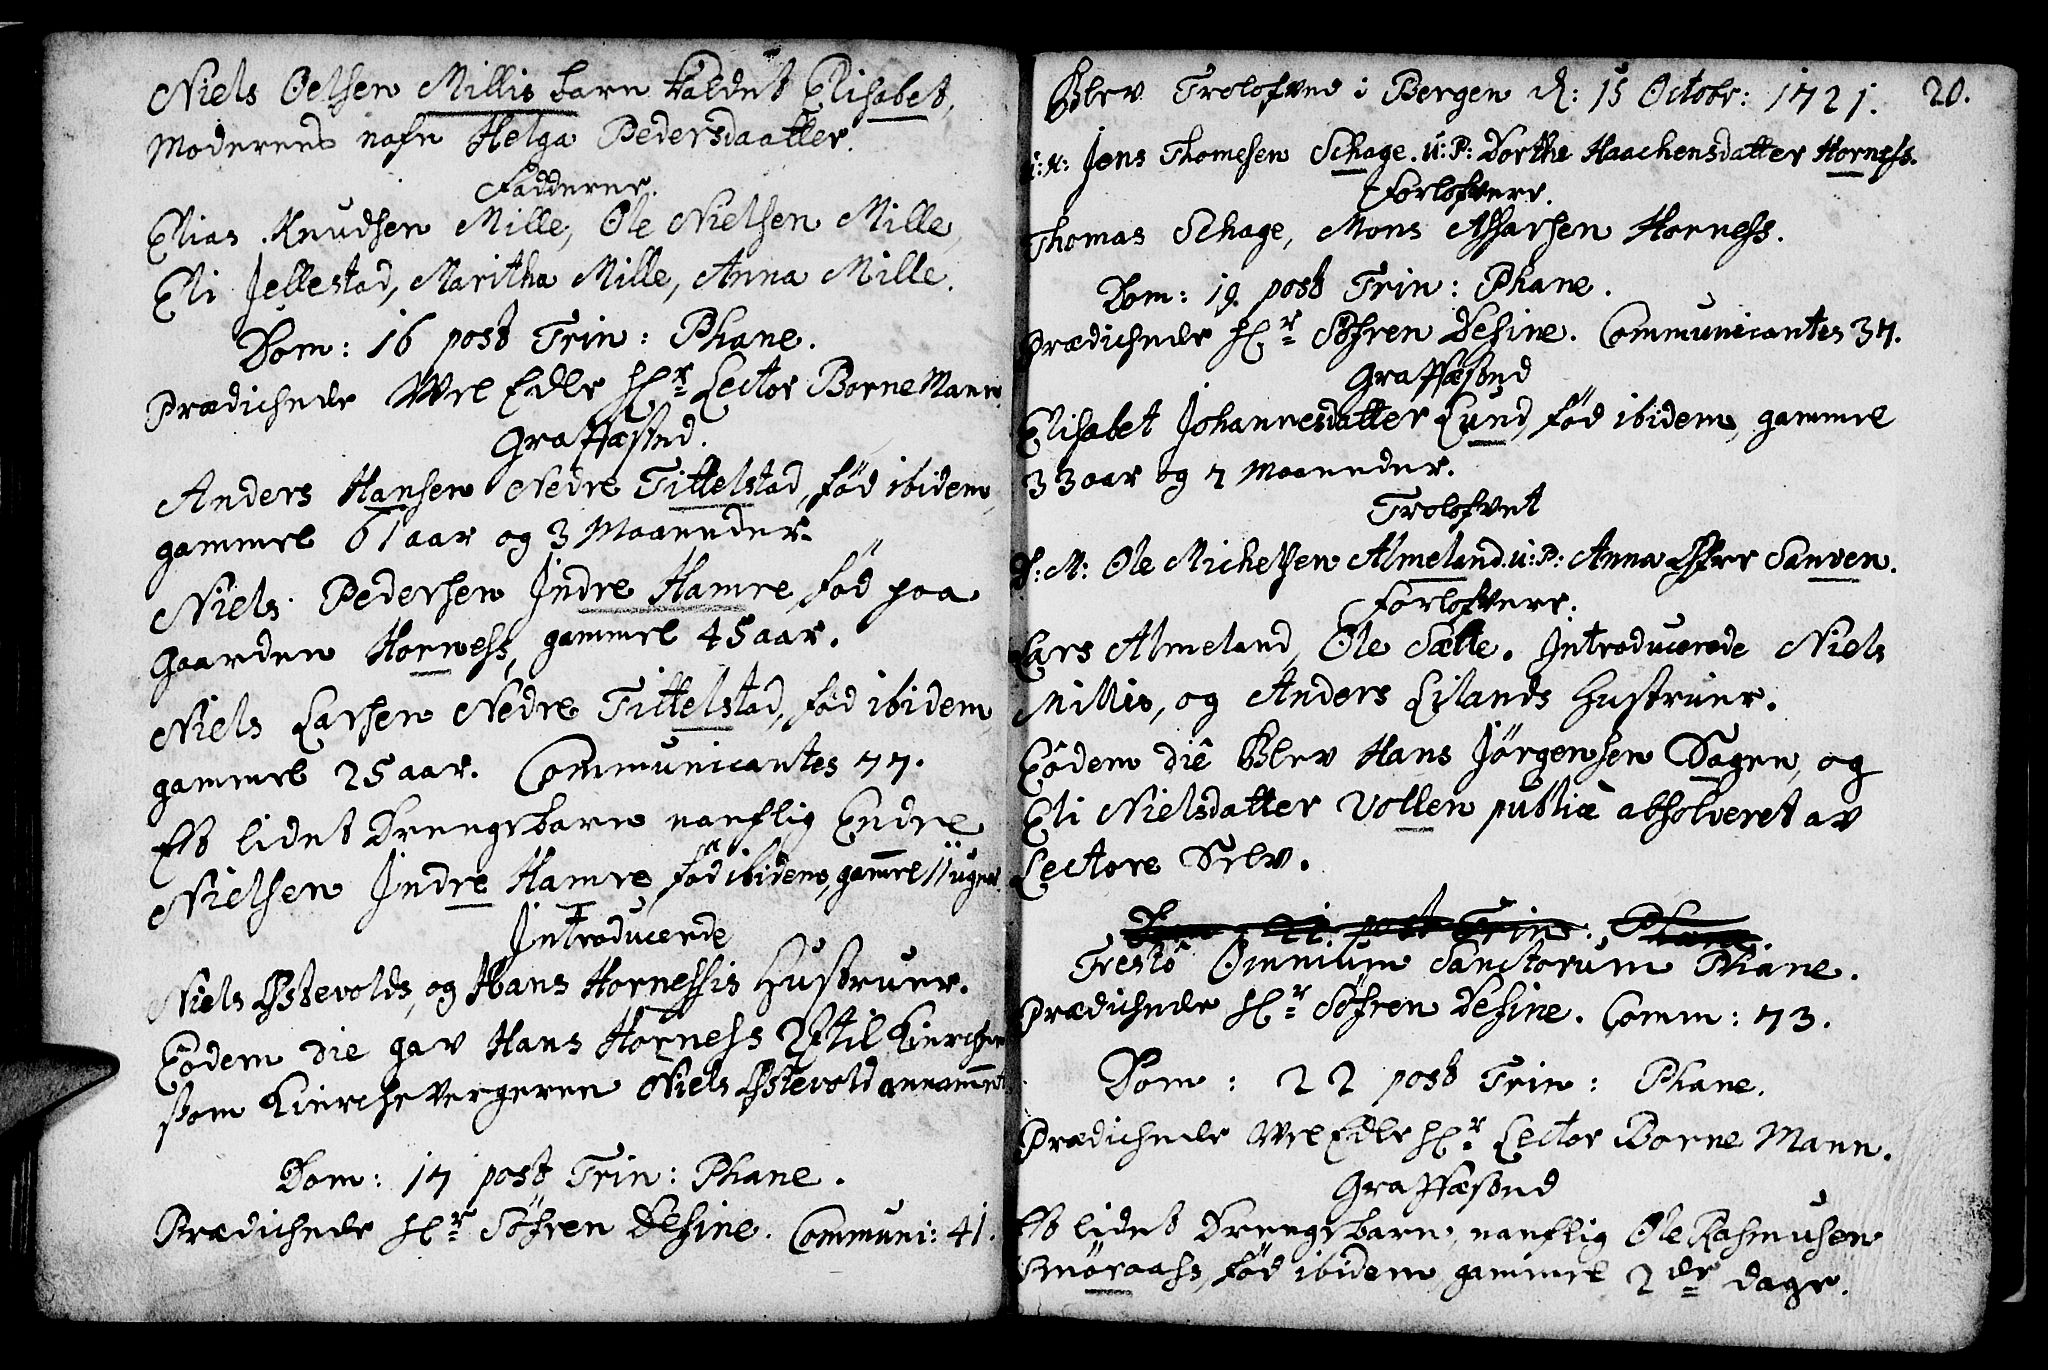 Niels Oelsen Millis barn kaldet Elisabet,
Moderens nafn Helga Pedersdaatter.
Fadderne.
Elias Knudsen Mille, Ole Nielsen Mille,
Eli Jellestad, Maritha Mille, Anna Mille.
Dom: 16 post Trin: Phane.
Prædichede Wel Edle Hr Lector Borneman.
Graffæsted.
Anders Hansen Nedre Tittelstad, fød ibidem,
gammel 61 aar og 3 Maaneder.
Niels Pedersen Jndre Hamre, fød paa
Gaarden Horness, gammel 45 aar.
Niels Larsen Nedre Tittelstad, fød ibidem,
gammel 25 aar. Communicantes 77.
Et lidet Drengebarn nauflig Endre
Nielsen Jndre Hamre fød ibidem, gamel 11 uger.
Introducerede
Niels Østevolds, og Hans Hornessis Hustruer.
Eodem die gav Hans Horness 2 til Kierchen
som Kierchevergeren Niels Østevold annammet
Dom: 17 post Trin: Phane.
Prædichede Hr Söfren Desine. Communi: 41.
20.
Blev Trolofved i Bergen d: 15 Octobr: 1721.
Jens Thomesen Schage. u: P: Dorthe Haachensdatter Horness.
Forlofvere.
Thomas Schage, Mons Assarsen Horness.
Dom: 19. post Trin: Phane.
Prædichede Hr Söfren Desine. Communicantes 37.
Graffæsted
Elisabet Johannesdatter Lund, fød ibidem, gammel
33 aar og 7 Maaneder.
Trolofvet
S: M: Ole Michelsen Almeland. u: P: Anna Sanven.
Forlofvere.
Lars Almeland, Ole Sælle. Introducerede Niels
Millis, og Anders Lilands Hustruer.
Eôdem diê Blev Hans Jörgensen Sagen, og
Eli Nielsdatter Vollen publicè absolveret av
Lectore Selv.
Dom: 21. post Trin: Phane
Festô Omnium Sanctorum Phane.
Prædichede Hr Söfren Desine. Comm: 73.
Dom: 22 post Trin: Phane.
Prædichede Wel Edle Hr Lector Borne Mann.
Graffæsted
Et lidet Drengebarn, nauflig Ole Rasmusen
Smöraass, fød ibidem gammel 2de dage.